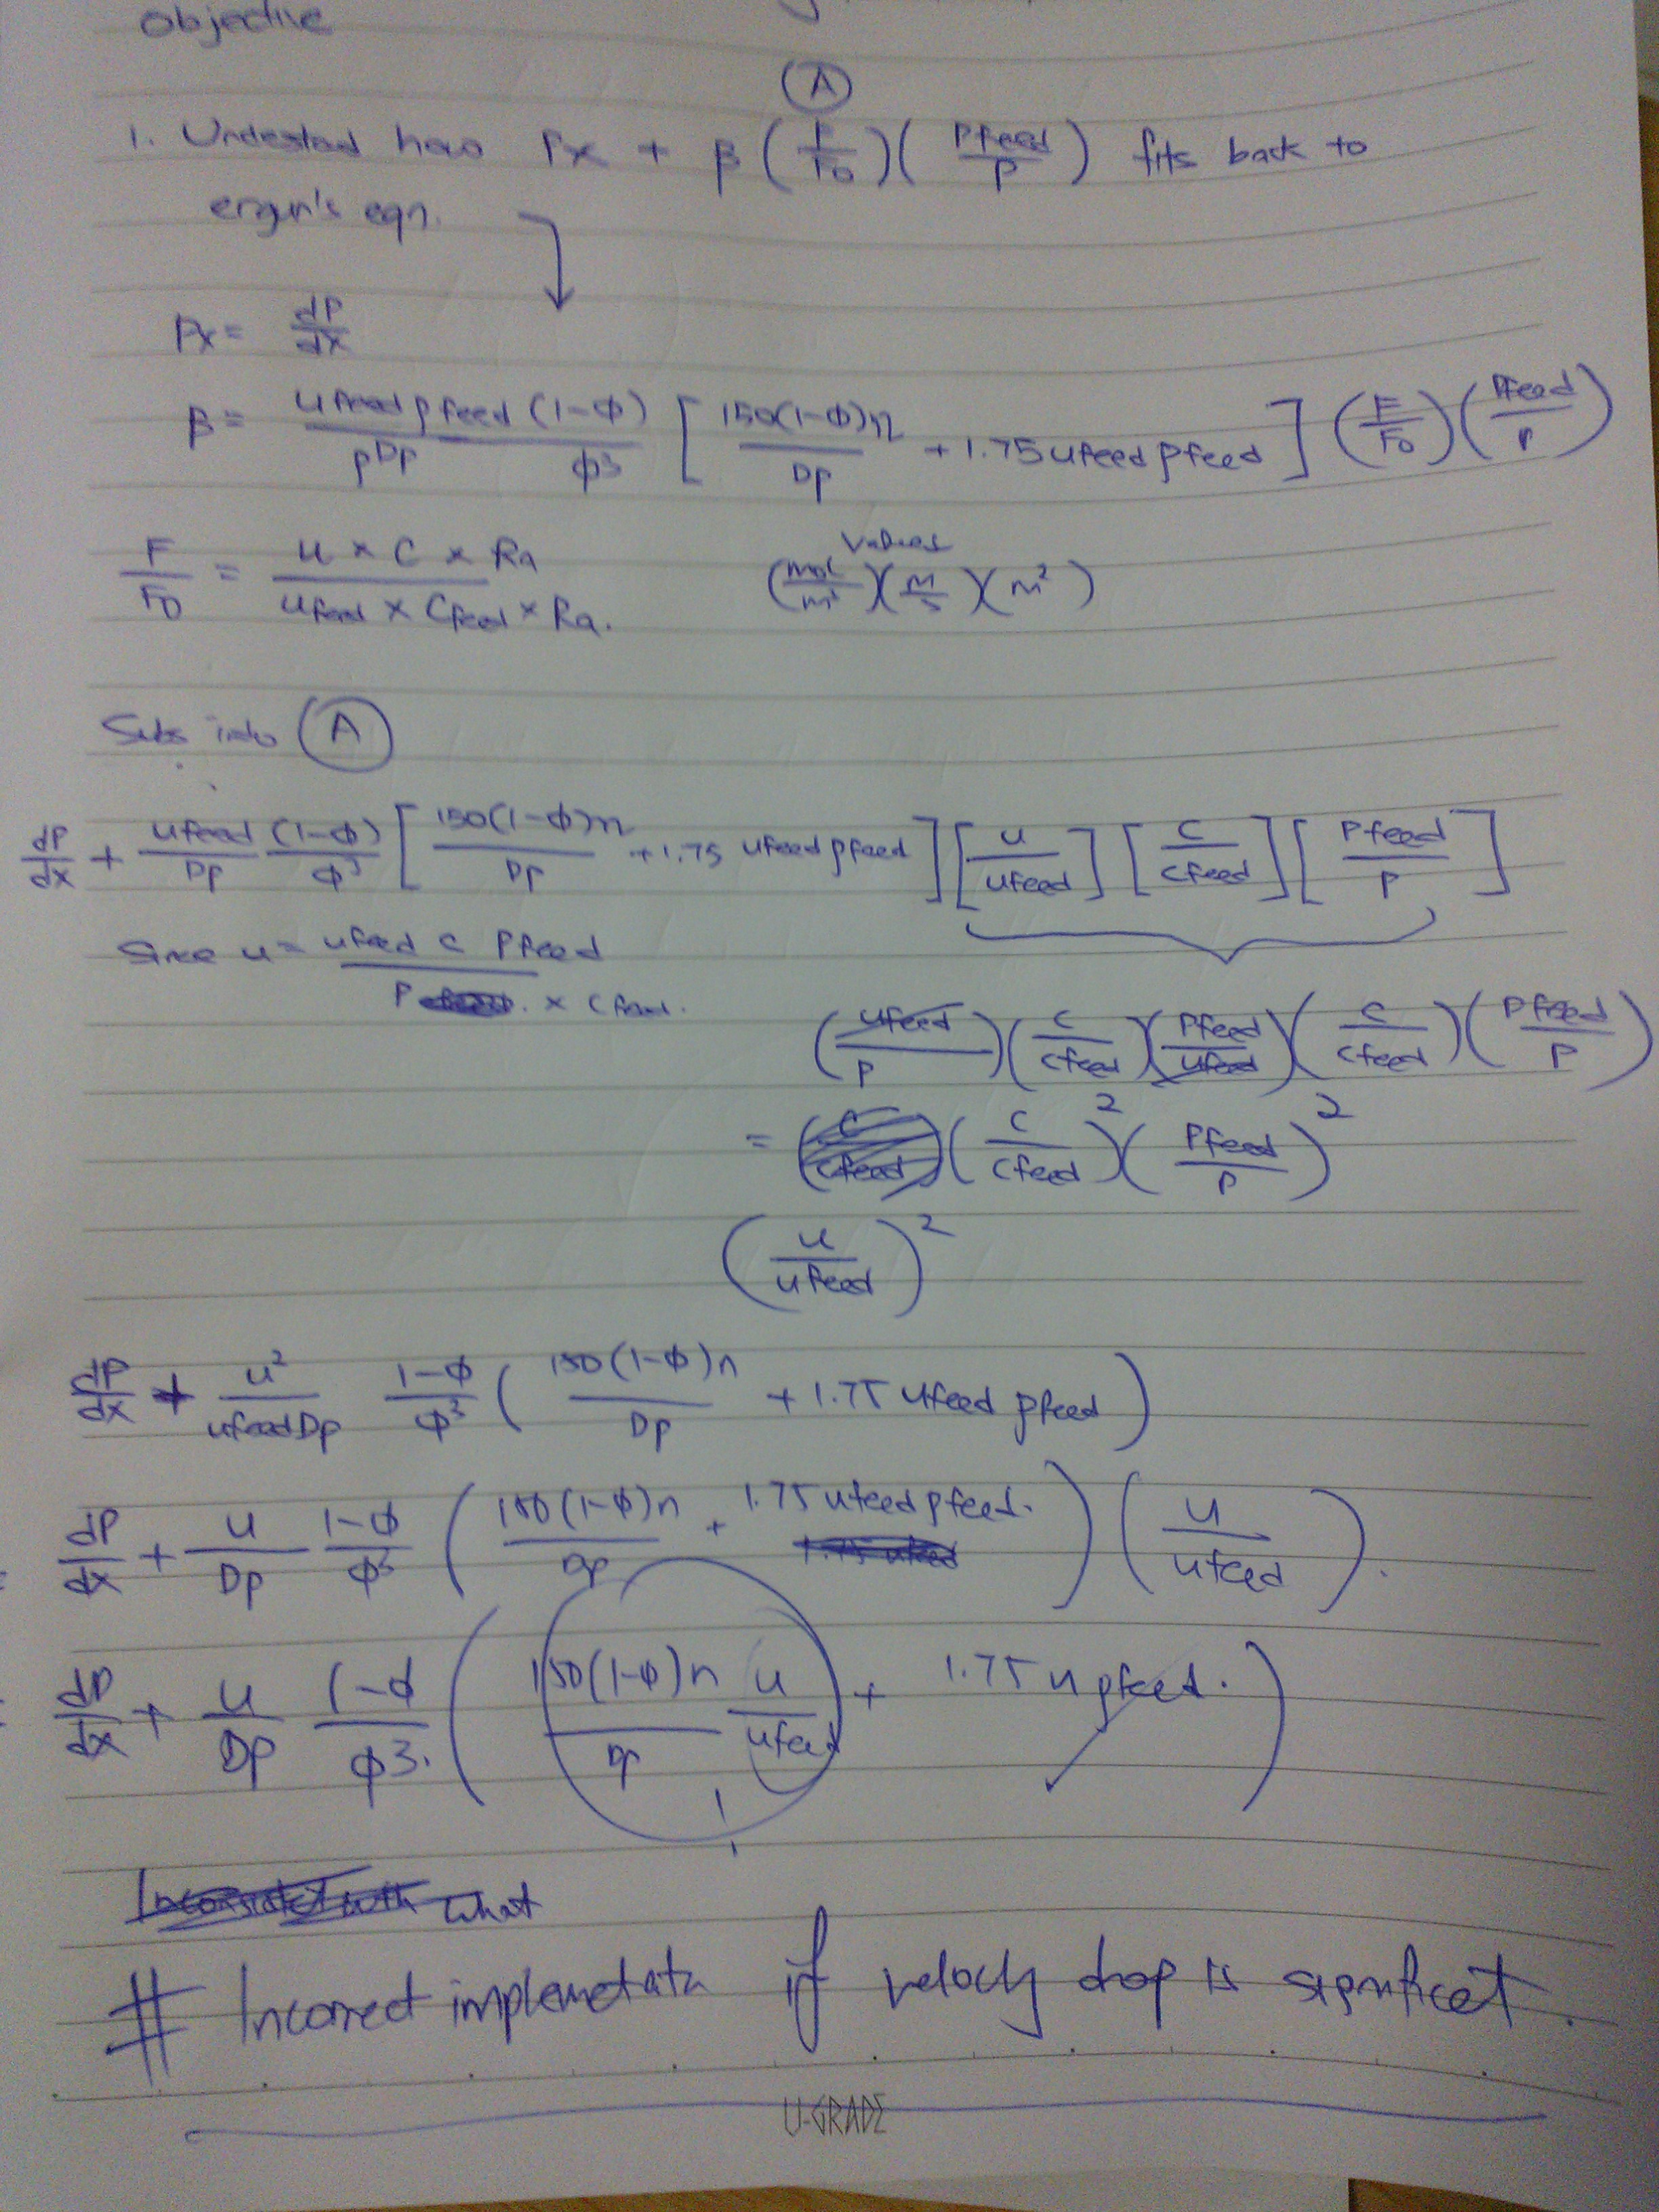 Objective
(A)
1. Undestand how Px + β (F/F0)(Pfeed/P) fits back to
ergun's eqn.
Px = dP/dx
β = ufeed ρfeed (1-Φ)/ρDp Φ3 [150(1-Φ)n/Dp + 1.75 ufeed ρfeed] (F/F0)(Pfeed/P)
F/F0 = u × C × Ra/ufeed × Cfeed × Ra.
values
(mol/m3)(m/s)(m2)
Subs into (A)
dP/dx + ufeed/Dp (1-Φ)/Φ3 [150(1-Φ)n/Dp + 1.75 ufeed ρfeed][u/ufeed][C/Cfeed][Pfeed/P]
Since u = ufeed C Pfeed/P × Cfeed.
(ufeed/P)(C/Cfeed)(Pfeed/ufeed)(C/Cfeed)(Pfeed/P)
= (C/Cfeed)(C/Cfeed)2(Pfeed/P)2
(u/ufeed)2
dP/dx + u2/ufeedDp 1-Φ/Φ3 (150(1-Φ)n/Dp + 1.75 ufeed ρfeed)
= dP/dx + u/Dp 1-Φ/Φ3 (150(1-Φ)n/Dp + 1.75 ufeed ρfeed.)(u/ufeed).
= dP/dx + u/Dp 1-Φ/Φ3. (150(1-Φ)n/Dp u/ufeed + 1.75 u ρfeed.)
what
# Incorrect implemetatn if velocity drop is significat.
U-GRADE